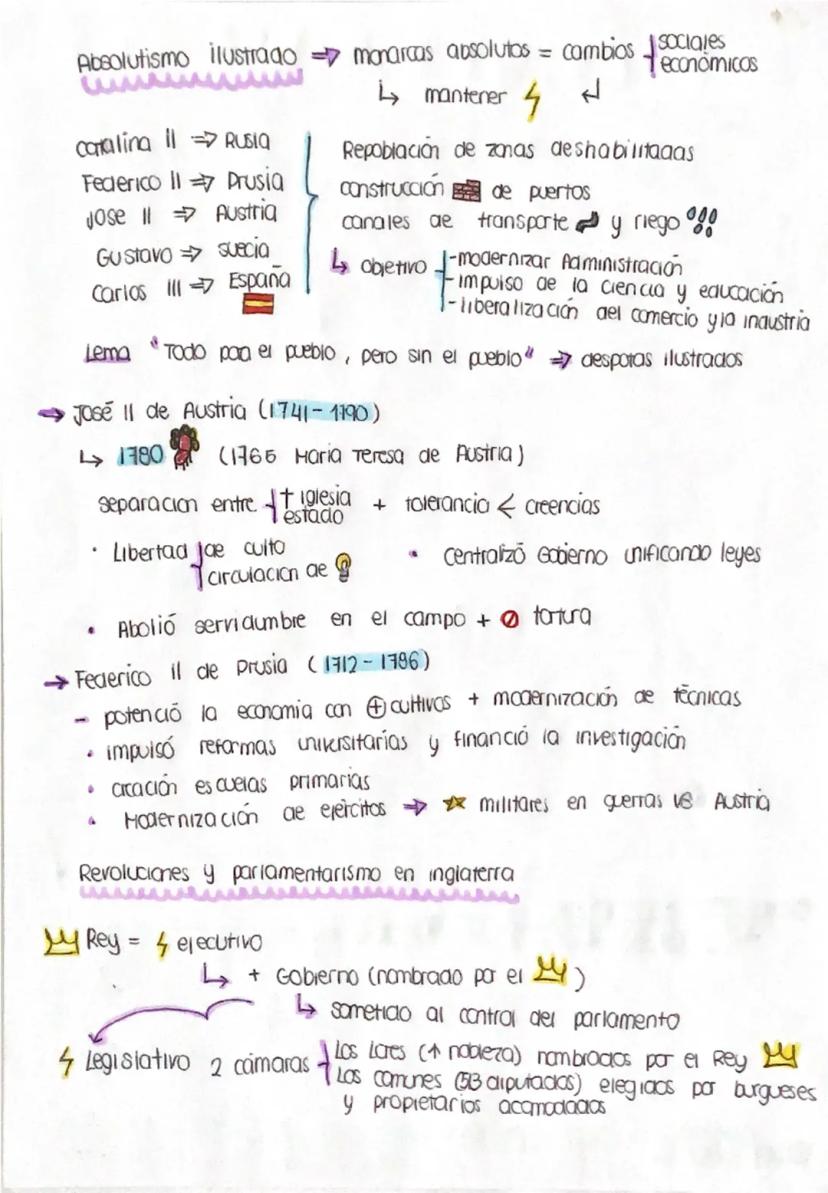 Absolutismo ilustrado ⇒ monarcas absolutos = cambios sociales
económicos
↳ mantener ⚡ ↲
Catalina II ⇒ Rusia
Federico II ⇒ Prusia
Jose II ⇒ Austria
Gustavo ⇒ Suecia
Carlos III ⇒ España
Repoblación de zonas deshabilitadas
construcción de puertos
canales de transporte y riego
↳ objetivo - modernizar Administración
- impulso de la ciencia y educación
- liberalización del comercio y la industria
Lema "Todo para el pueblo, pero sin el pueblo" ⇒ despotas ilustrados
→ José II de Austria (1741 - 1790)
↳ 1780 (1765 Maria Teresa de Austria)
separacion entre iglesia
estado
+ tolerancia < creencias
· Libertad de culto
circulacion de
• centralizó Gobierno unificando leyes
• Abolió servidumbre en el campo + tortura
→ Federico II de Prusia (1712 - 1786)
- potenció la economia con ⊕ cultivos + modernización de técnicas
• impulsó reformas universitarias y financió la investigación
• creación escuelas primarias
• Modernización de ejércitos → militares en guerras vs Austria
Revoluciones y parlamentarismo en inglaterra
Rey = ⚡ ejecutivo
↳ + Gobierno (nombrado por el )
↳ sometido al control del parlamento
⚡ Legislativo 2 cámaras
Los Lores (↑ nobleza) nombrados por el Rey
Los comunes (513 diputados) elegidos por burgueses
y propietarios acomodados